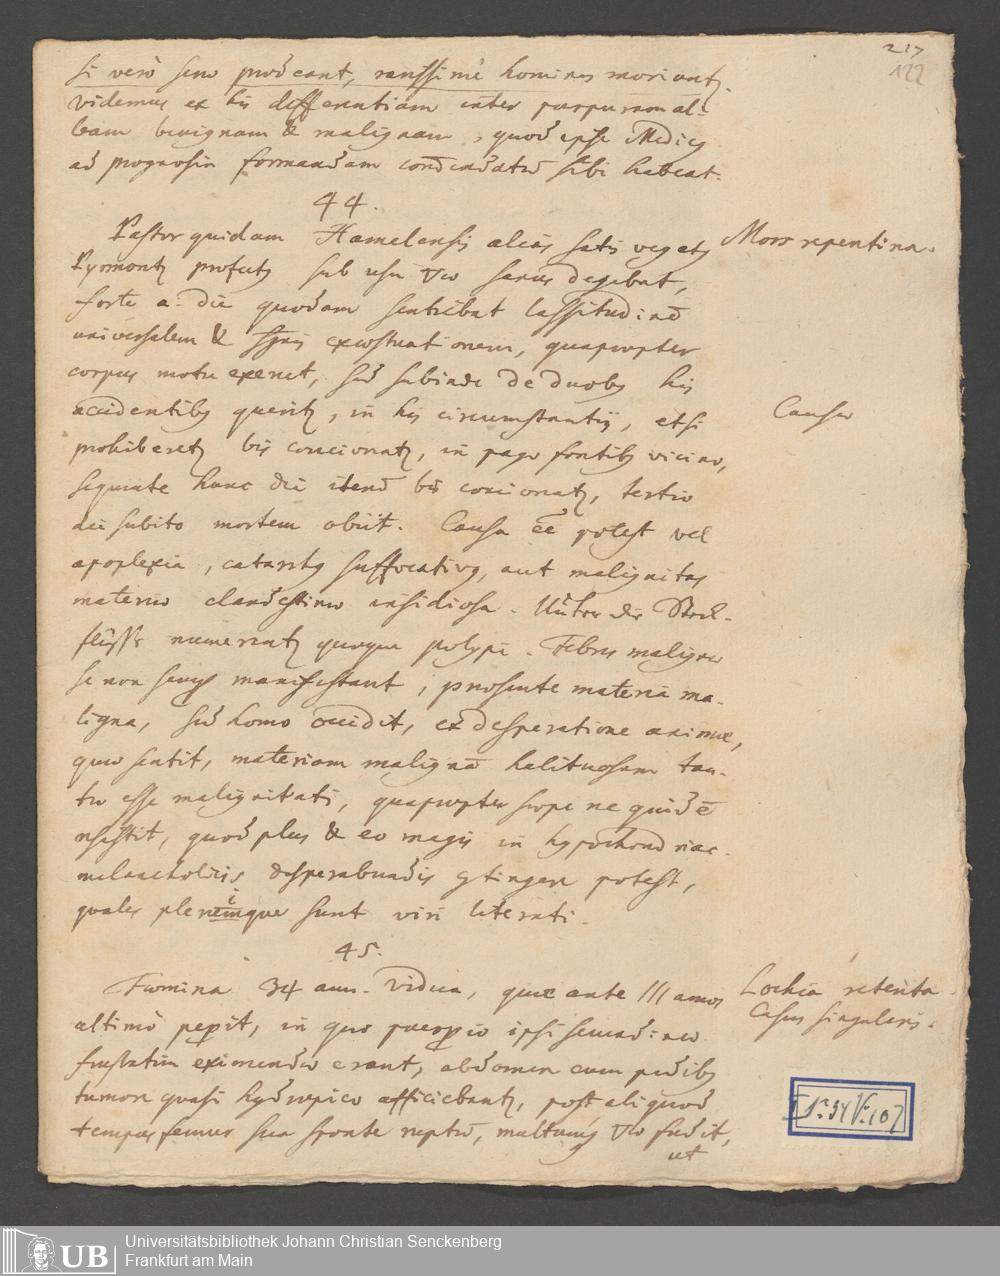 217
122
si vero seno prodeant, rarissime homines moriuntur.
videmus ex his differentiam inter purpuram al-
bam benignam & malignam, quod ipse Medicus
ad prognosin formandam commendatum sibi habeat.
44.
Pastor quidam Hamelensis alias satis vegetus
Mors repentina.
Pyrmontum profectus sub usu degebat,
forte a die quodam sentiebat lassitudinem
universalem & exaestuationem, quapropter
corpus motu exercet, sed subinde de duobus his
accidentibus queritur, in his circumstantiis, etsi
Causa
prohiberetur bis concionatur, in pago fontibus vicino,
sequente hunc die iterum bis concionatur, tertio
die subito mortem obiit. Causa esse potest vel
apoplexia, catarrhus suffocativus, aut malignitas
materiae clandestine insidiosa. Unter die Steck-
flüsse numerantur quoque polypi. Febres malignae
se non semper manifestant, praesente materia ma-
ligna, sed homo occidit, ex desperatione animae,
quae sentit, materiam malignam halituosam tan-
tae esse malignitatis, quapropter saepe ne quidem
resistit, quod plus & eo magis in hypochondriac.
melancholicis desperabundis contingere potest,
quales plerumque sunt viri literati.
45.
Foemina 34 ann. Vidua, quae ante III annos
Lochia retenta.
ultimo peperit, in quo puerperio ipsi secundinae
Casus singularis.
frustatim eximendae erant, abdomen cum pedibus
tumore quasi hydropico afficiebantur, post aliquod
tempus femur sua sponte ruptum, multum fudit,
ut
Universitätsbibliothek Johann Christian Senckenberg
Frankfurt am Main
UB